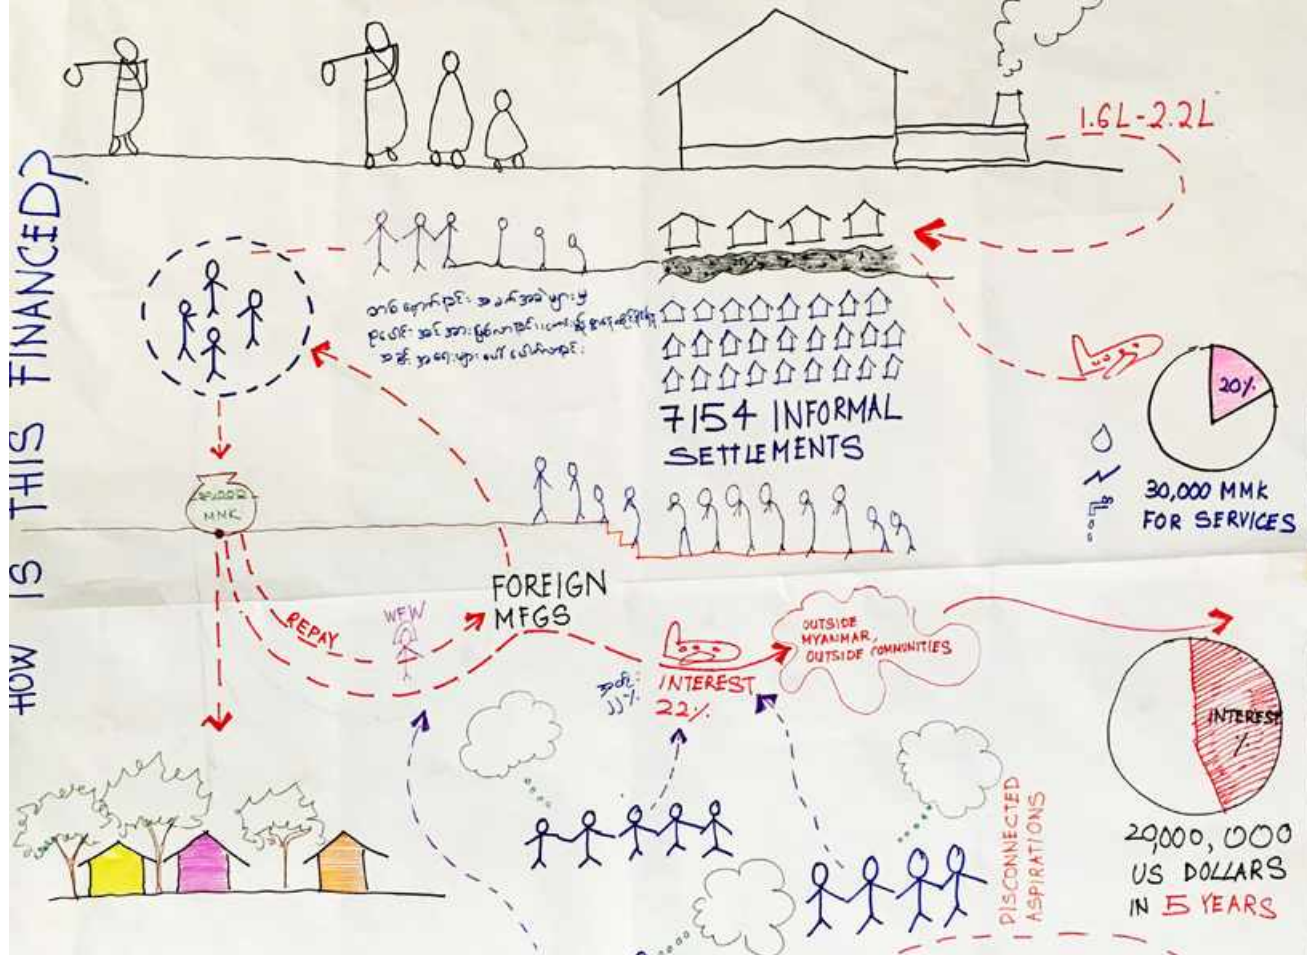 HOW IS THIS FINANCED?
1.6L-2.2L
7154 INFORMAL
SETTLEMENTS
20%
30,000 MMK
FOR SERVICES
MMK
REPAY
WFW
FOREIGN
MFGS
INTEREST
22%
OUTSIDE
MYANMAR,
OUTSIDE COMMUNITIES
INTEREST
%
20,000,000
US DOLLARS
IN 5 YEARS
DISCONNECTED
ASPIRATIONS